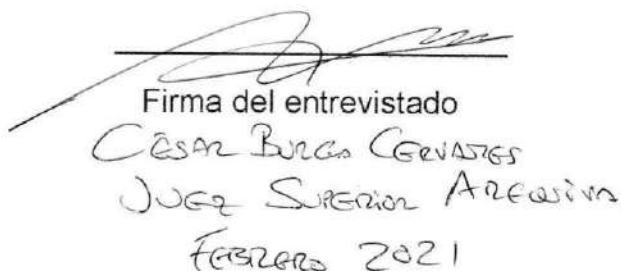 Firma del entrevistado
CÉSAR BURGOS CERVANTES
JUEZ SUPERIOR AREQUIPA
FEBRERO 2021